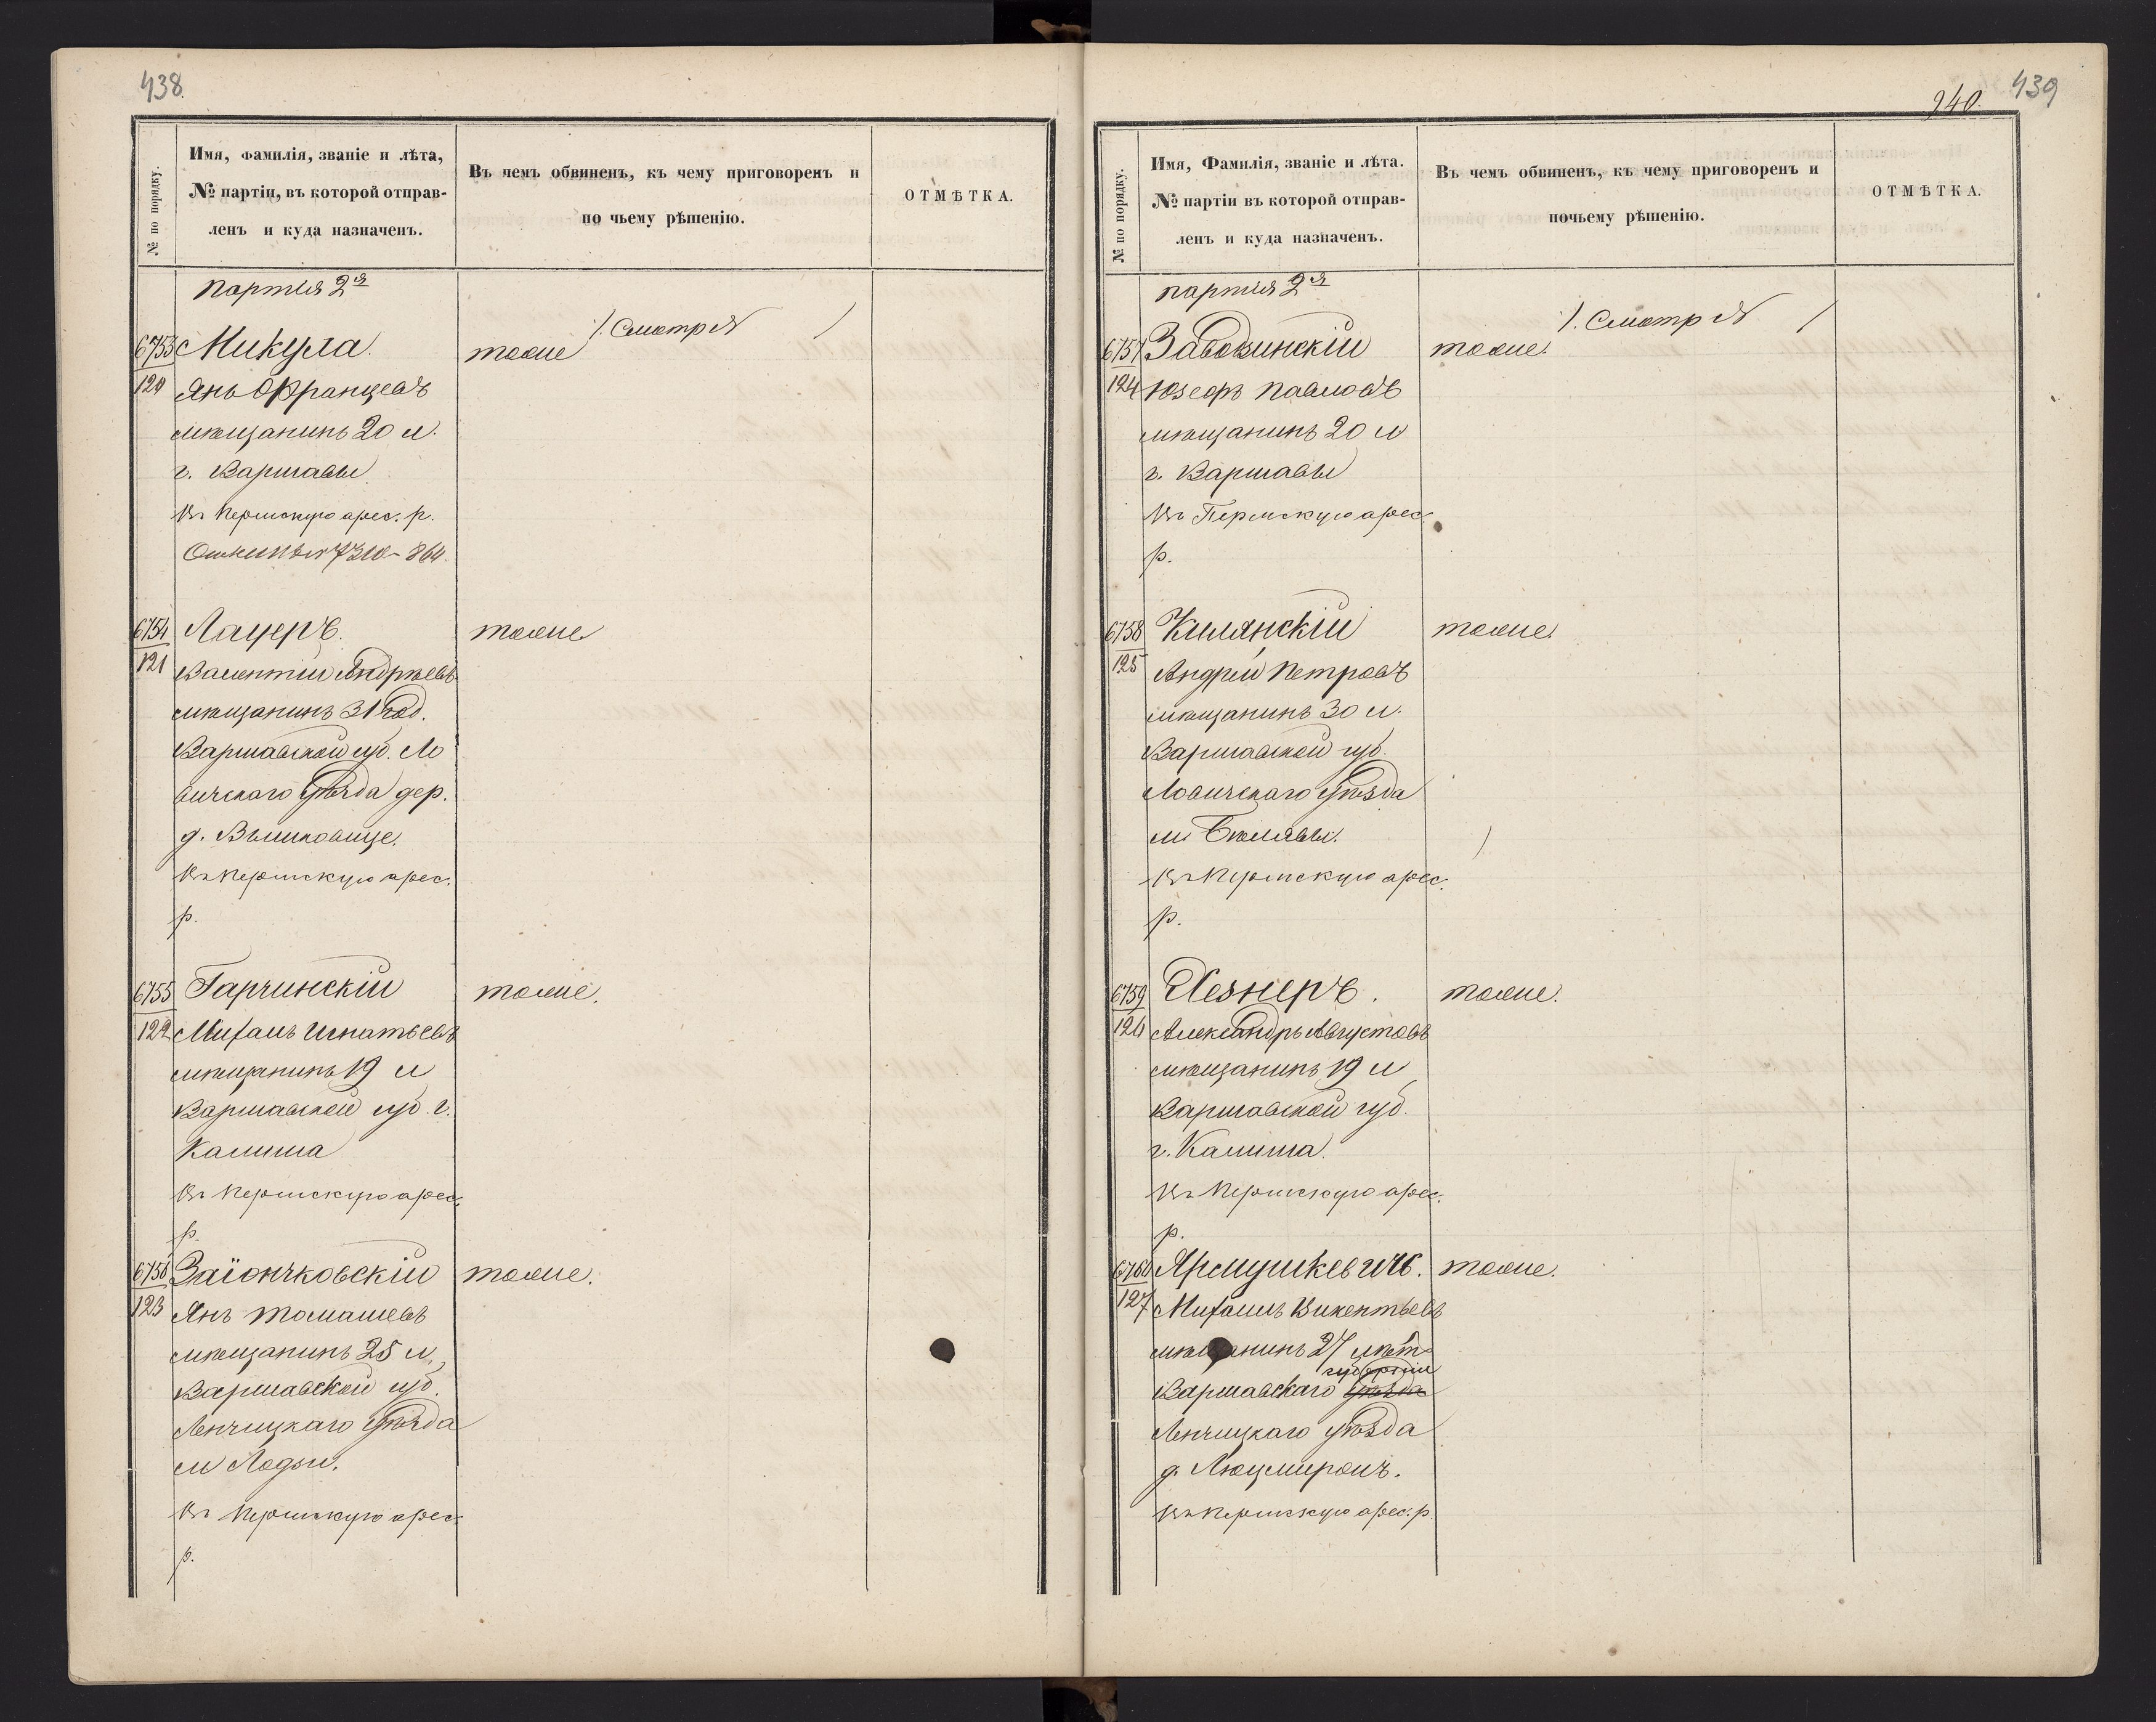 438.
№ по порядку.
Имя, фамилія, званіе и лѣта,
№ партіи, въ которой отправ-
ленъ и куда назначенъ.
Въ чемъ обвиненъ, къ чему приговоренъ и
по чьему рѣшенію.
ОТМѢТКА.
партія 2я
6753
120
Микула.
Янъ Францевъ
мѣщанинъ 20 л.
г. Варшавы
Въ Пермскую арес. р.
тоже
Смотр №
6754
121
Лауеръ.
Валентій Андрѣевъ
мѣщанинъ 31 год.
Варшавской губ. Ло
вичскаго уѣзда дер.
Въ Пермскую арес.
р.
тоже
6755
122
Гарчинскій
Михаилъ Игнатьевъ
мѣщанинъ 19 л
Варшавской губ. г.
Калиша
Въ Пермскую арес.
р.
тоже.
6756
123
Заіончковскій
Янъ Томашевъ
мѣщанинъ 25 л.
Варшавской губ.
Ленчицкаго уѣзда
м Лодзи.
Въ Пермскую арес.
р.
тоже.
439
240.
№ по порядку.
Имя, Фамилія, званіе и лѣта.
№ партіи въ которой отправ-
ленъ и куда назначенъ.
Въ чемъ обвиненъ, къ чему приговоренъ и
почьему рѣшенію.
ОТМѢТКА.
партія 2я
6757
124
Юзефъ Павловъ
мѣщанинъ 20 л
г. Варшавы
Въ Пермскую арес.
р.
тоже.
Смотр №
6758
125
Килянскій
Андрей Петровъ
мѣщанинъ 30 л.
Варшавской губ.
Ловичскаго уѣзда
м. Бѣлявы.
Въ Пермскую арес.
р.
тоже.
6759
126
Хезнеръ.
Александръ Августовъ
мѣщанинъ 19 л
Варшавской губ.
г. Калиша.
Въ Пермскую арес.
р.
тоже.
6760
127
Ярмушкевичъ.
Михаилъ Викентьевъ
мѣщанинъ 27 лѣт
губерніи
Варшавскаго уѣзда
Ленчицкаго уѣзда
д.
Въ Пермскую арес. р.
тоже.